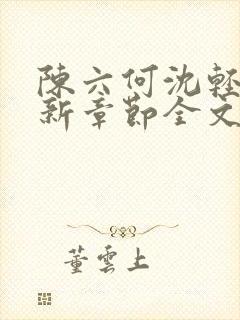 陳六何沈輕
新章節全文
董雲上